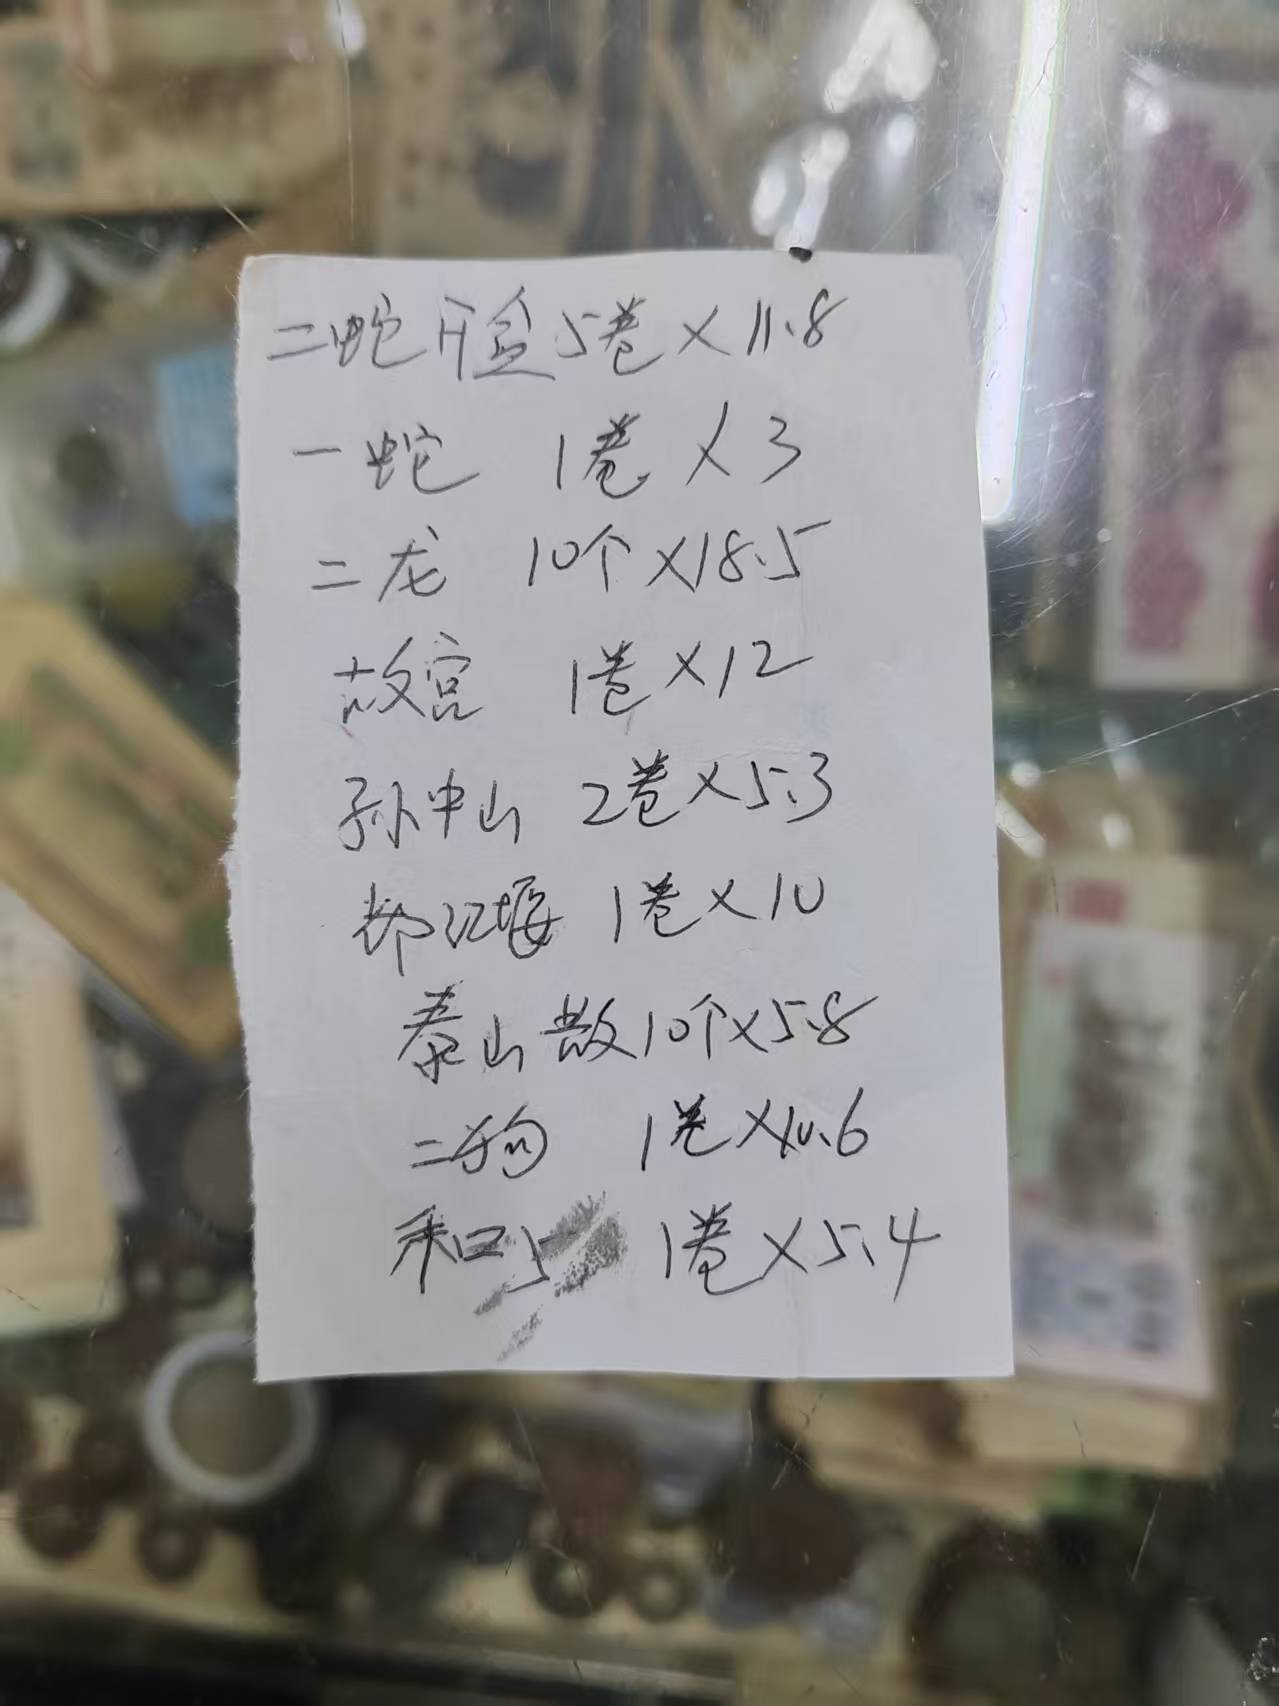 二蛇开盒5卷×11.8
一蛇 1卷×3
二龙 10个×18.5
故宫 1卷×12
孙中山 2卷×5.3
都江堰 1卷×10
泰山散10个×5.8
二狗 1卷×10.6
和口5 1卷×5.4